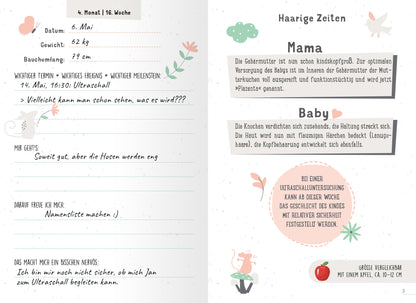 4. Monat | 16. Woche
Datum: 6. Mai
Gewicht: 62 kg
Bauchumfang: 79 cm
WICHTIGER TERMIN * WICHTIGES EREIGNIS * WICHTIGER MEILENSTEIN:
14. Mai, 16:30: Ultraschall
> Vielleicht kann man schon sehen, was es wird???
MIR GEHT'S:
Soweit gut, aber die Hosen werden eng
DARAUF FREUE ICH MICH:
Namensliste machen :)
DAS MACHT MICH EIN BISSCHEN NERVÖS:
Ich bin mir noch nicht sicher, ob mich Jan
zum Ultraschall begleiten kann.
Haarige Zeiten
Mama
Die Gebärmutter ist nun schon kindskopfgroß. Zur optimalen
Versorgung des Babys ist im Inneren der Gebärmutter der Mut-
terkuchen voll ausgereift und funktionstüchtig und wird jetzt
»Plazenta« genannt.
Baby
Die Knochen verdichten sich zusehends, die Haltung streckt sich.
Die Haut wird nun mit flaumigen Härchen bedeckt (Lanugo-
haare), die Kopfbehaarung entwickelt sich ebenfalls.
BEI EINER
ULTRASCHALLUNTERSUCHUNG
KANN AB DIESER WOCHE
DAS GESCHLECHT DES KINDES
MIT RELATIVER SICHERHEIT
FESTGESTELLT WERDEN.
GRÖSSE VERGLEICHBAR
MIT EINEM APFEL, CA. 10–12 CM